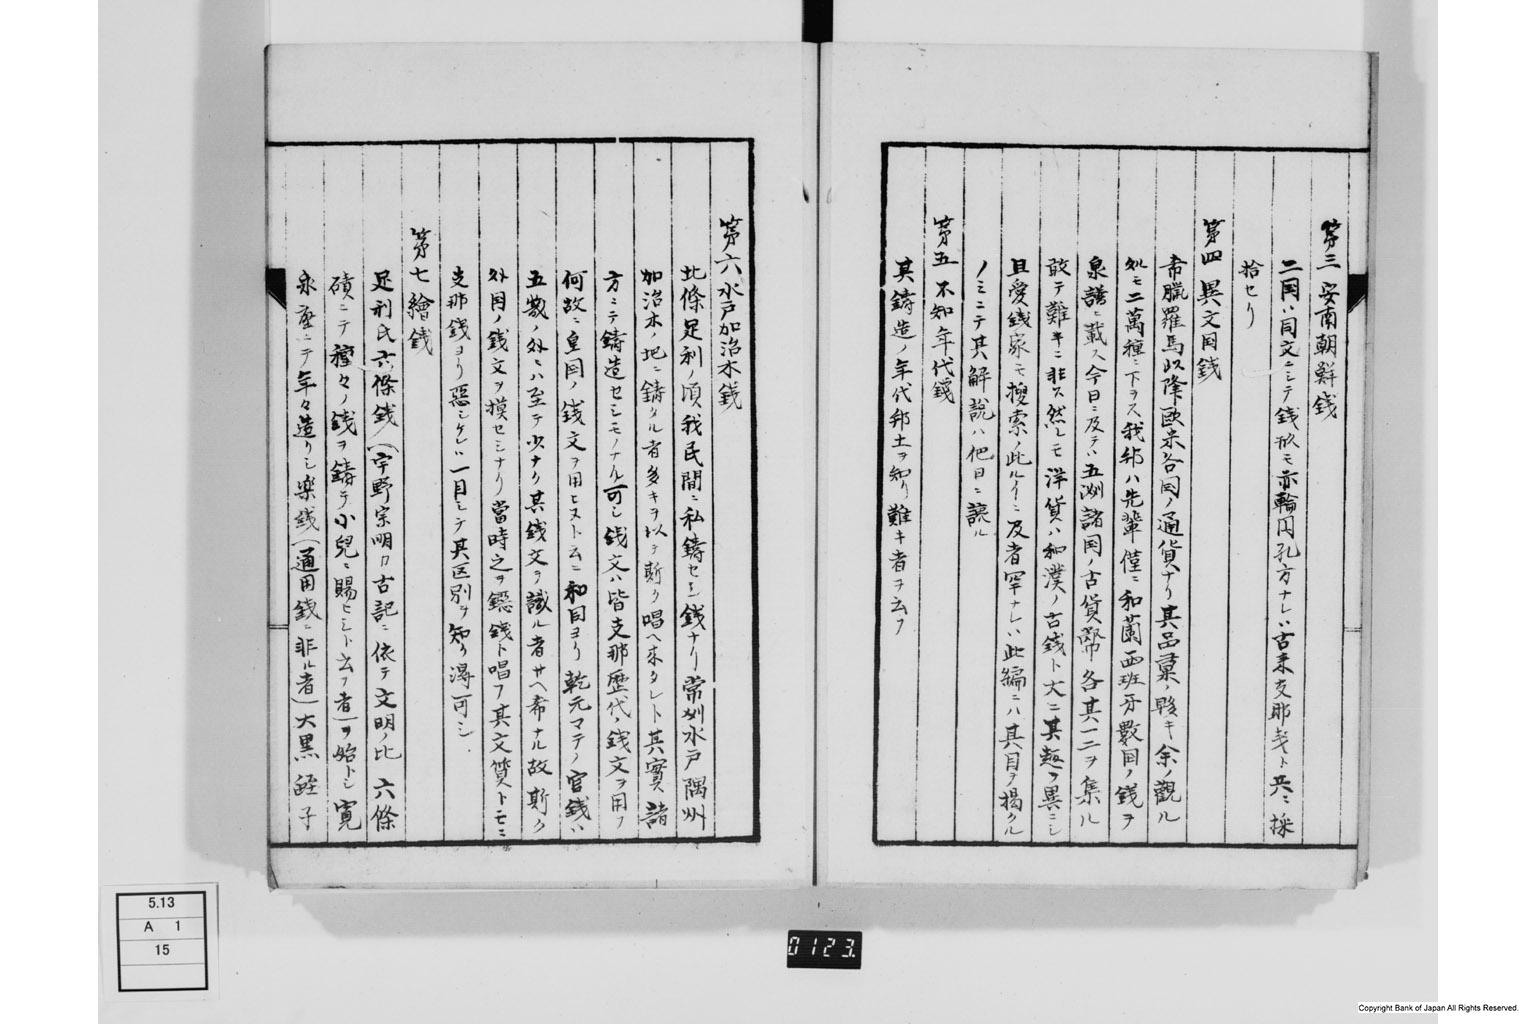 第三 安南朝鮮銭
二国ハ同文ニシテ銭形モ亦輪円孔方ナレハ古来支那銭ト共ニ採
拾セリ
第四 異文国銭
希臘羅馬以降欧米各国ノ通貨ナリ其品彙ノ夥キ余ノ觀ル
処モ二萬種ニ下ラス我邦ハ先輩僅ニ和蘭西班牙數国ノ銭ヲ
泉譜ニ載ス今日ニ及テハ五洲諸国ノ古貨幣各其一二ヲ集ル
敢テ難キニ非ス然レモ洋貨ハ和漢ノ古銭ト大ニ其趣ヲ異ニシ
且愛銭家モ搜索此ルイニ及者罕ナレハ此編ニハ其目ヲ揚クル
ノミニテ其解説ハ他日ニ譲ル
第五 不知年代銭
其鋳造ノ年代邦土ヲ知リ難キ者ヲ云フ
第六 水戸加治木銭
北條足利ノ頃我民間ニ私鋳セシ銭ナリ常刕水戸隅州
加治木ノ地ニ鋳タル者多キヲ以テ斯ク唱ヘ来タレト其實諸
方ニテ鋳造セシモノナル可シ銭文ハ皆支那歴代ノ銭文ヲ用フ
何故ニ皇国ノ銭文ヲ用ヒスト云ニ和同ヨリ乾元マテノ官銭ハ
五畿ノ外ニハ至テ少ナク其銭文ヲ識ル者サヘ希ナル故斯ク
外国ノ銭文ヲ摸セシナリ當時之ヲ鐚銭ト唱フ其文質トモニ
支那銭ヨリ惡シケレハ一目シテ其区別ヲ知リ得可シ
第七 繪銭
足利氏六條銭（宇野宗明カ古記ニ依テ文明ノ比六條
磧ニテ種々ノ銭ヲ鋳テ小兒ニ賜ヒシト云フ者）ヲ始トシ寛
永座ニテ年々造リシ楽銭（通用銭ニ非ル者）大黒蛭子
5.13
A 1
15
0123.
Copyright Bank of Japan All Rights Reserved.